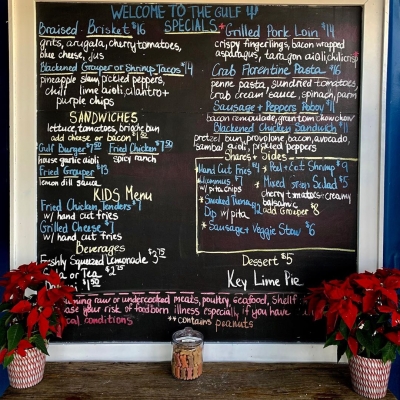 WELCOME TO THE GULF
SPECIALS
Braised Brisket $16
grits, arugula, cherry tomatoes,
blue cheese, jus
Blackened Grouper or Shrimp Tacos $14
pineapple slaw, pickled peppers,
chili lime aioli, cilantro +
purple chips
SANDWICHES
lettuce, tomatoes, brioche bun
add cheese or bacon $1
Gulf Burger $7.50 Fried Chicken $7.50
house garlic aioli spicy ranch
Fried Grouper $13
lemon dill sauce
KIDS Menu
Fried Chicken Tenders
w/ hand cut fries
Grilled Cheese
w/ hand cut fries
Beverages
Freshly Squeezed Lemonade
or Tea $2.75
$1.50
Grilled Pork Loin $14
crispy fingerlings, bacon wrapped
asparagus, tarragon aioli, chili crisp
Crab Florentine Pasta $16
penne pasta, sundried tomatoes,
crab cream sauce, spinach, parm
Sausage + Peppers Poboy $11
bacon remoulade, chow chow
Blackened Chicken Sandwich $11
pretzel bun, provolone, bacon, avocado,
sambal aioli, pickled peppers
Shares + Sides
Hand Cut Fries $4
Hummus $7
w/ pita chips
*Smoked Tuna
Dip w/ pita $12
*Sausage + Veggie Stew $6
* Peel + Eat Shrimp $9
* Mixed Greens Salad $5
cherry tomatoes creamy
balsamic
add Grouper $8
Dessert $5
Key Lime Pie
raw or undercooked meats, poultry, seafood, shellf
ase your risk of foodborn illness especially, if you have
cal conditions **contains peanuts